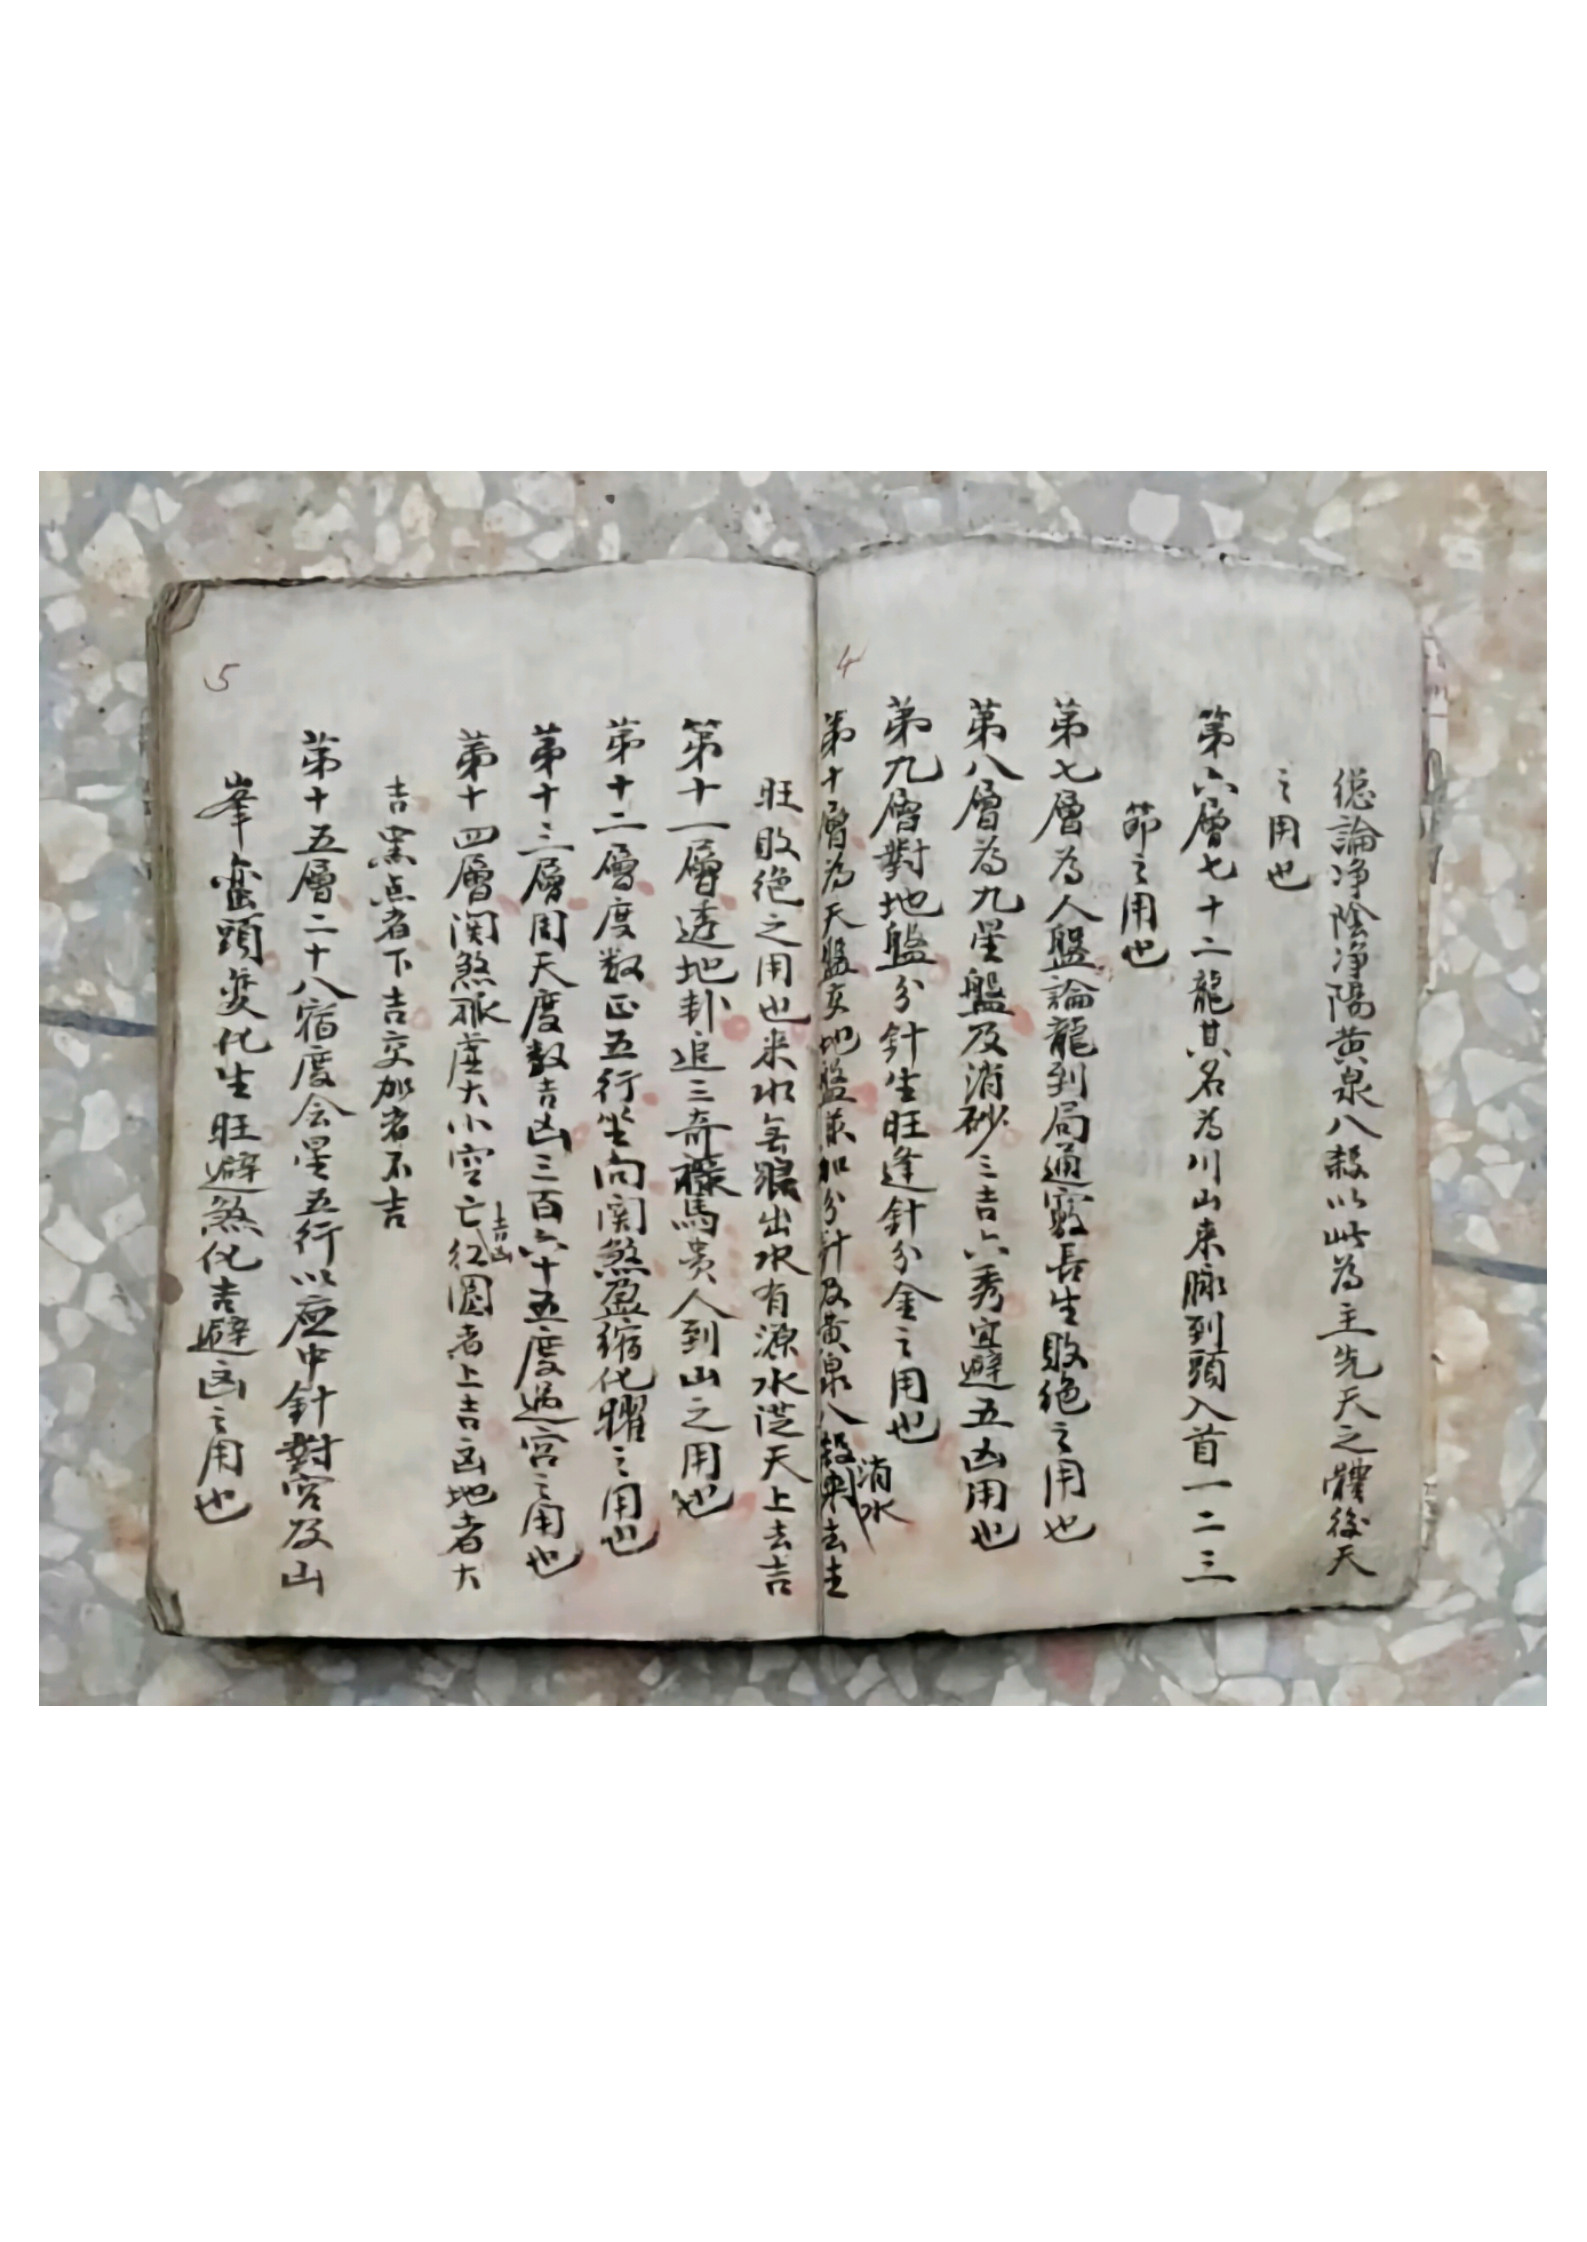 4
總論净陰净陽黄泉八殺以此為主先天之體後天
之用也
第六層七十二龍其名為川山来脉到頭入首一二三
節之用也
第七層為人盤論龍到局通竅長生敗绝之用也
第八層為九星盤及消砂三吉六秀宜避五凶用也
第九層對地盤分針生旺逢針分金之用也
消水
第十層為天盤交地盤兼加分針及黄泉八殺 去生
旺敗绝之用也来水 出水有源水 天上去吉
第十一層透地卦追三奇禄馬贵人到山之用也
第十二層度数正五行坐向関煞盈缩化曜之用也
第十三層周天度数吉凶三百六十五度过宫之用也
第十四層関煞孤虚大小空亡红圆者上吉凶地者大
吉凶
吉黑点者下吉交加者不吉
第十五層二十八宿度会星五行以应中針對宫及山
峯峦頭变化生旺避煞化吉避凶之用也
5